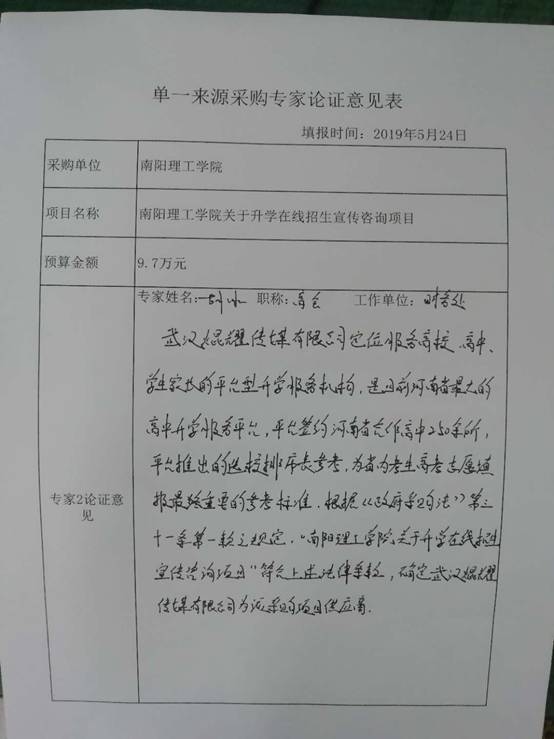 单一来源采购专家论证意见表
填报时间：2019年5月24日
采购单位 南阳理工学院
项目名称 南阳理工学院关于升学在线招生宣传咨询项目
预算金额 9.7万元
专家姓名: 职称:高会 工作单位:财务处
武汉焜耀传媒有限公司定位服务高校、高中、
学生家长的平台型升学服务机构，是目前河南省最大的
高中升学服务平台，平台签约河南省合作高中250余所，
平台推出的选校排序表参考，为省内考生高考志愿填
专家2论证意见
报最终重要的参考标准．根据《政府采购法》第三
十一条第一款之规定，"南阳理工学院关于升学在线招生
宣传咨询项目"符合上述法律条款，确定武汉焜耀
传媒有限公司为该采购项目供应商．